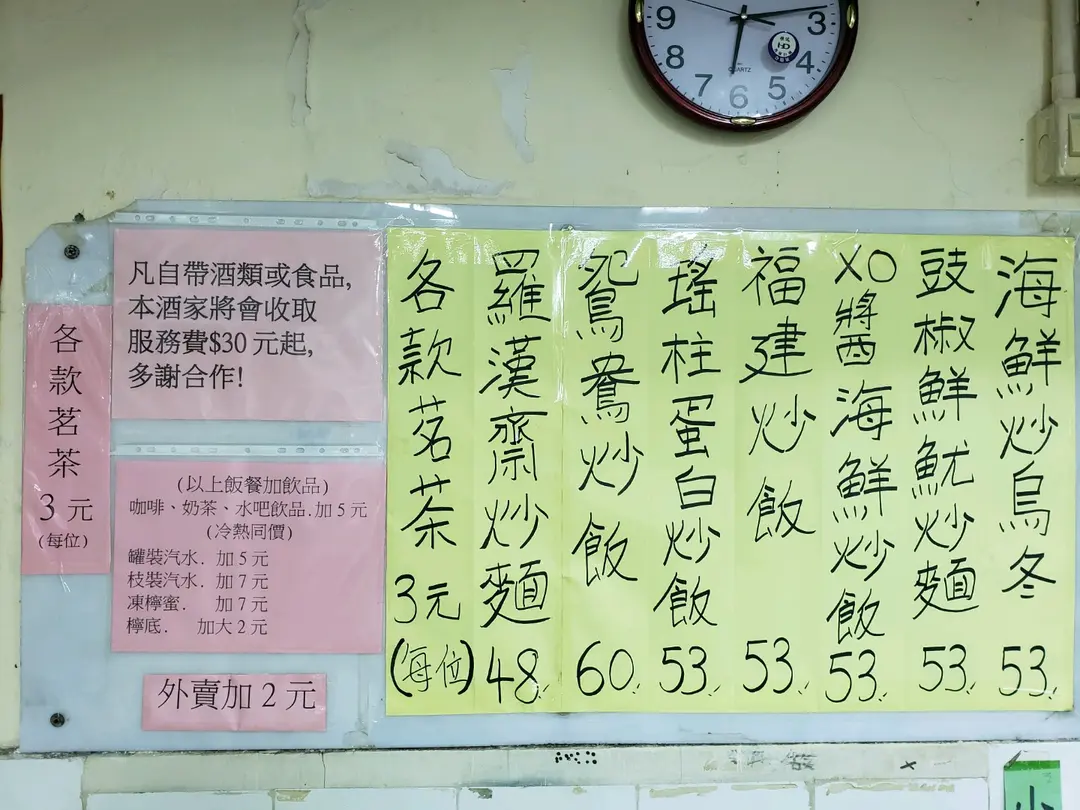 9
3
8
4
7
5
6
QUARTZ
各款茗茶
3元
(每位)
凡自帶酒類或食品,
本酒家將會收取
服務費$30元起,
多謝合作!
(以上飯餐加飲品)
咖啡、奶茶、水吧飲品.加5元
(冷熱同價)
罐裝汽水. 加5元
枝裝汽水. 加7元
凍檸蜜. 加7元
檸底. 加大2元
外賣加2元
海鮮炒烏冬 53
豉椒鮮魷炒麵 53
XO醬海鮮炒飯 53
福建炒飯 53
瑤柱蛋白炒飯 53
鴛鴦炒飯 60
羅漢齋炒麵 48
各款茗茶 3元 (每位)